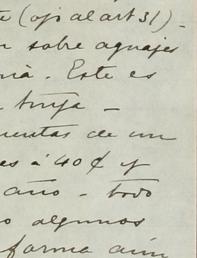 (ojo al art 31) -
sobre aguajes
Este es
tinja -
cuentas de un
es á 40 ¢ y
año - todo
o algunos
forma aún